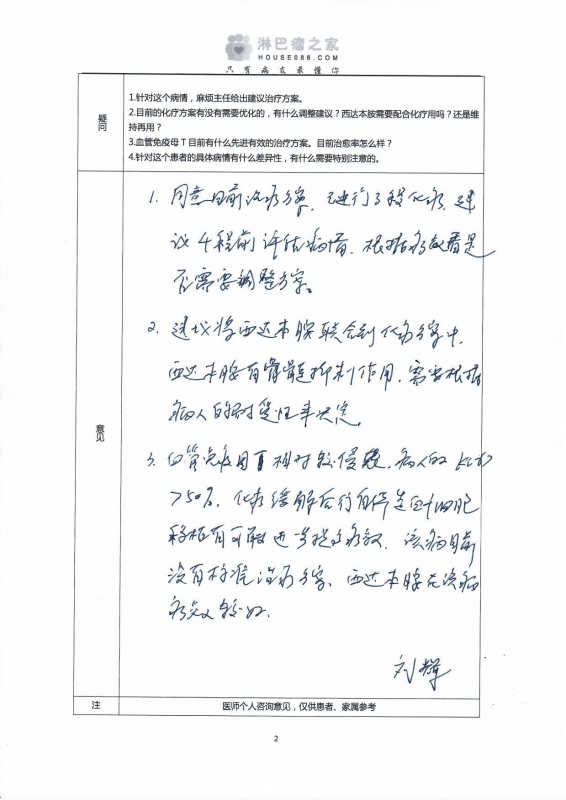 淋巴瘤之家
HOUSE086.COM
只有病友最懂你
疑问
1.针对这个病情，麻烦主任给出建议治疗方案。
2.目前的化疗方案有没有需要优化的，有什么调整建议？西达本胺需要配合化疗用吗？还是维
持再用？
3.血管免疫母 T 目前有什么先进有效的治疗方案。目前治愈率怎么样？
4.针对这个患者的具体病情有什么差异性，有什么需要特别注意的。
意见
1. 同意目前治疗方案，已进行了3程化疗，建
议4程前评估病情，根据疗效看是
否需要调整方案。
2. 建议将西达本胺联合到化疗方案中，
西达本胺有骨髓抑制作用，需要根据
病人的耐受性来决定
3. 血管免疫母T相对较侵袭，病人的 Ki67
>50%，化疗缓解后行自体造血干细胞
移植有可能进一步提高疗效，该病目前
没有标准治疗方案，西达本胺在该病
疗效较好.
刘辉
注
医师个人咨询意见，仅供患者、家属参考
2